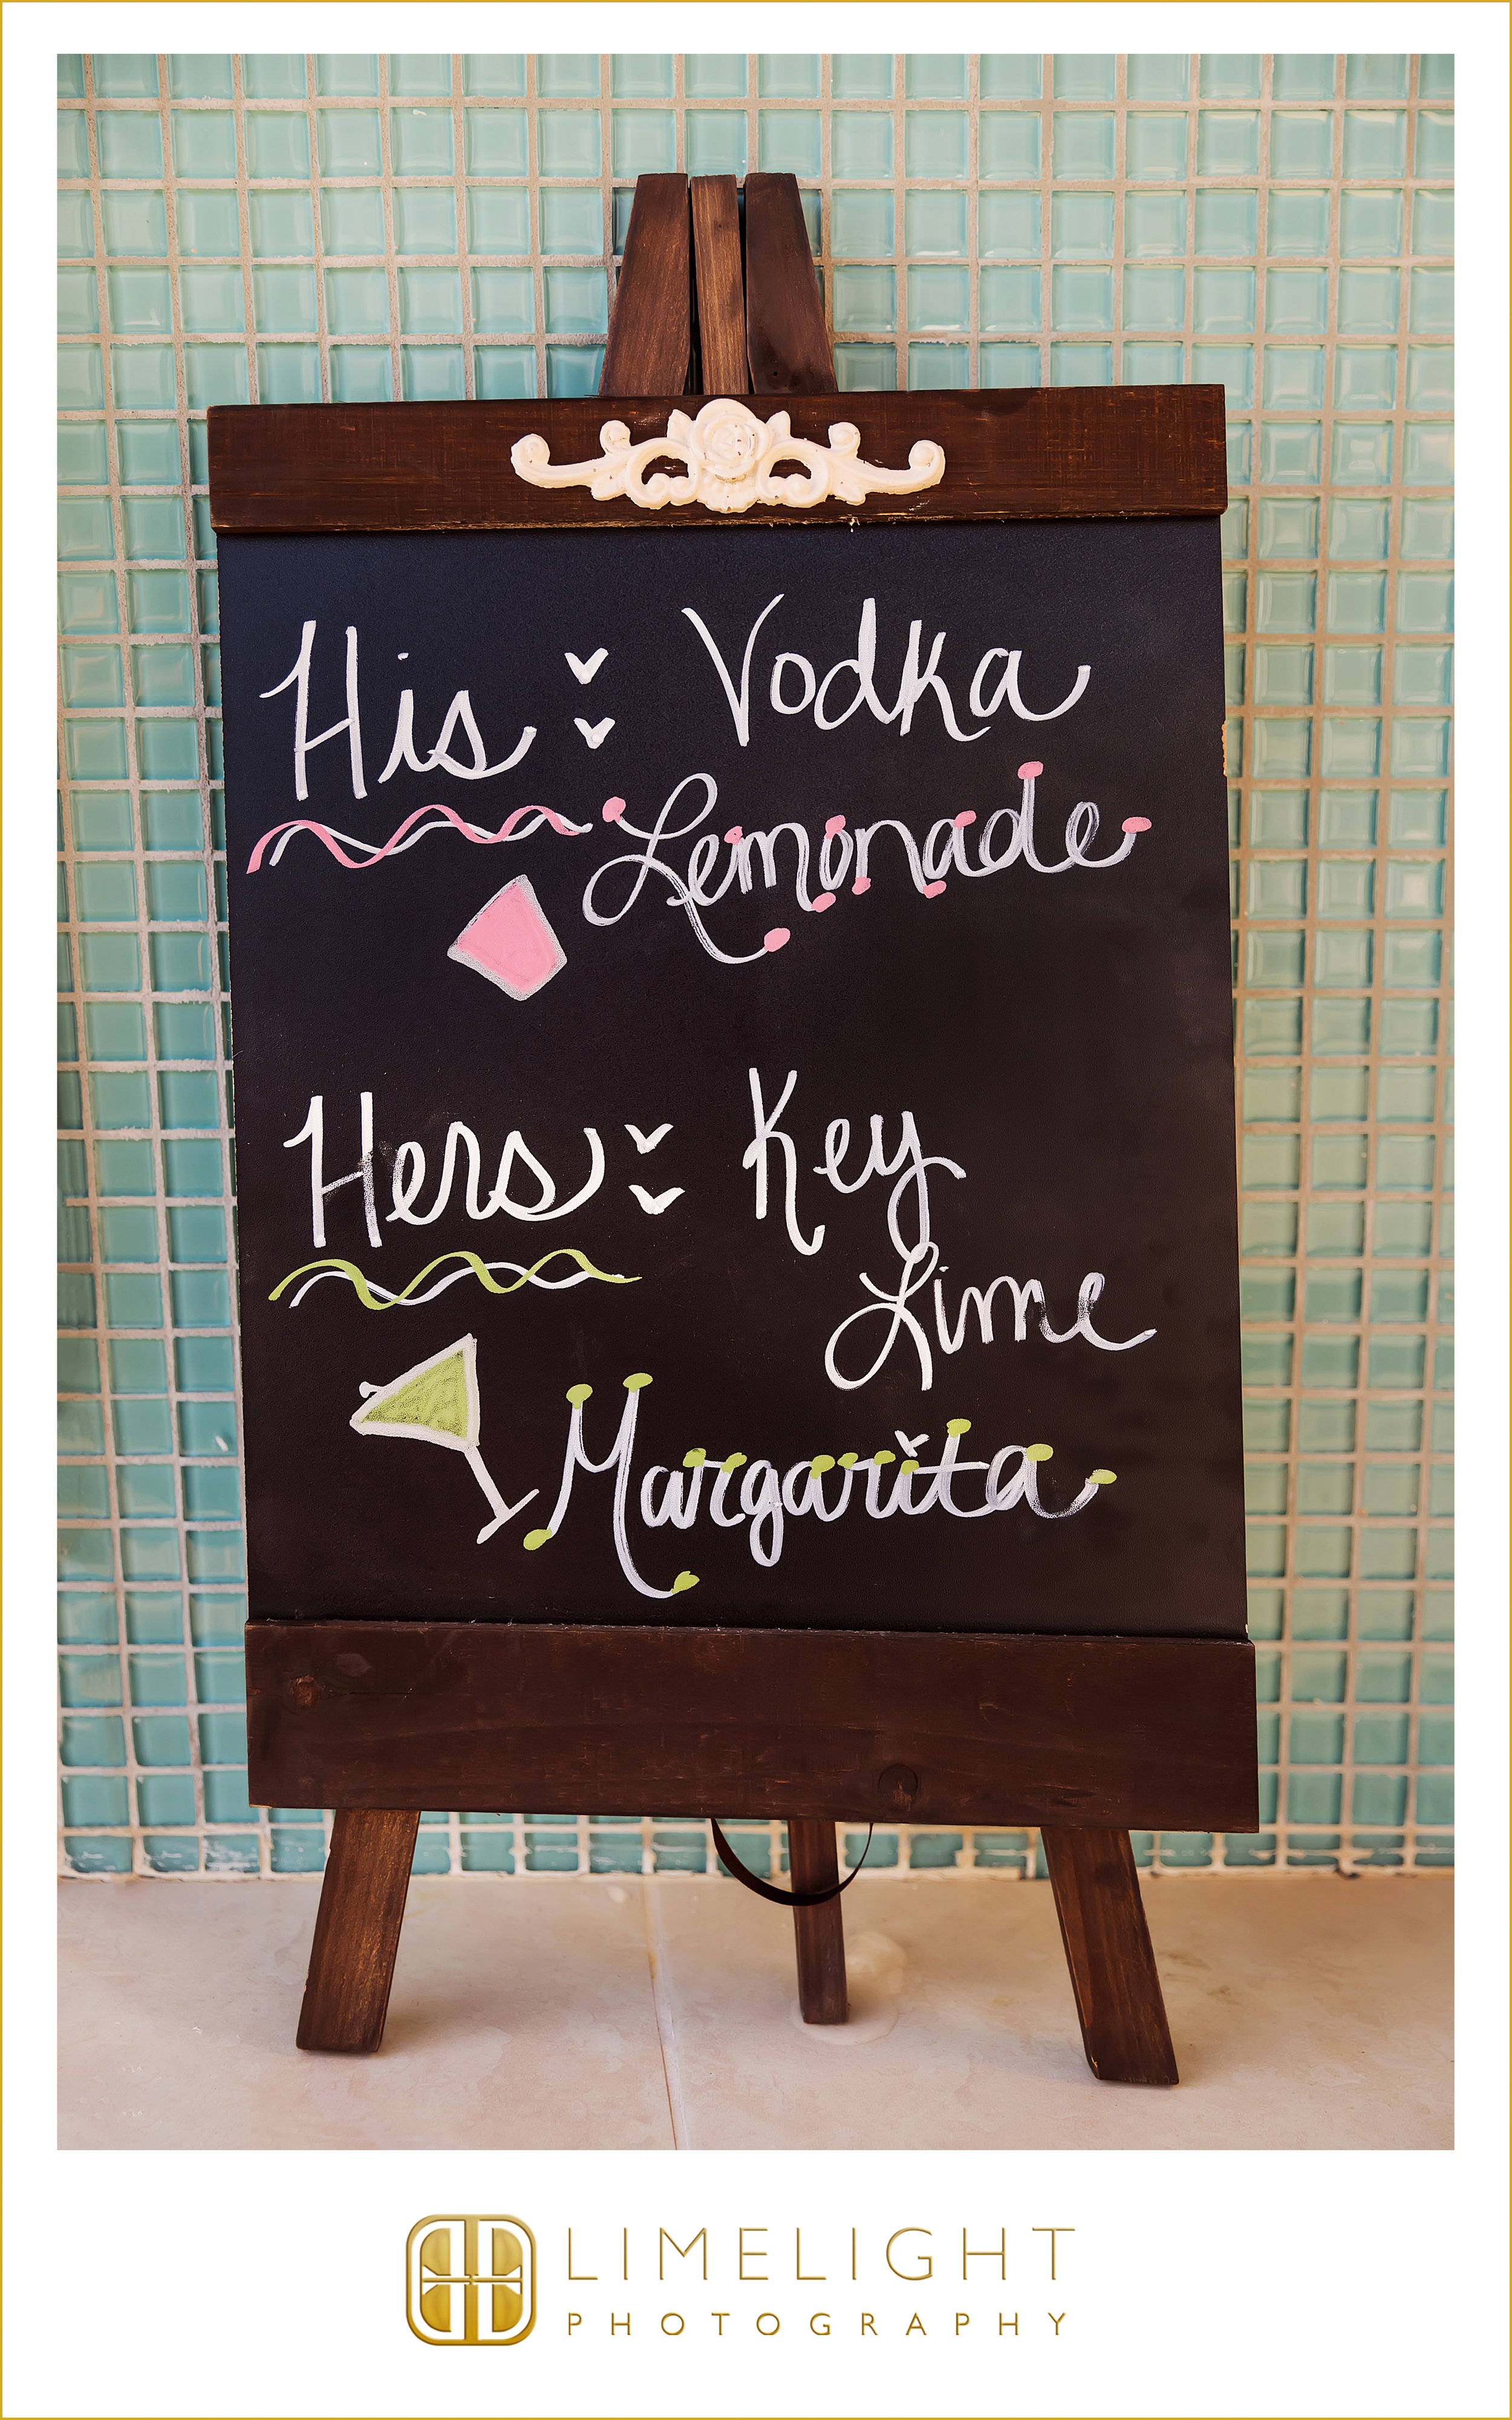 His: Vodka
Lemonade
Hers: Key
Lime
Margarita
LIMELIGHT
PHOTOGRAPHY